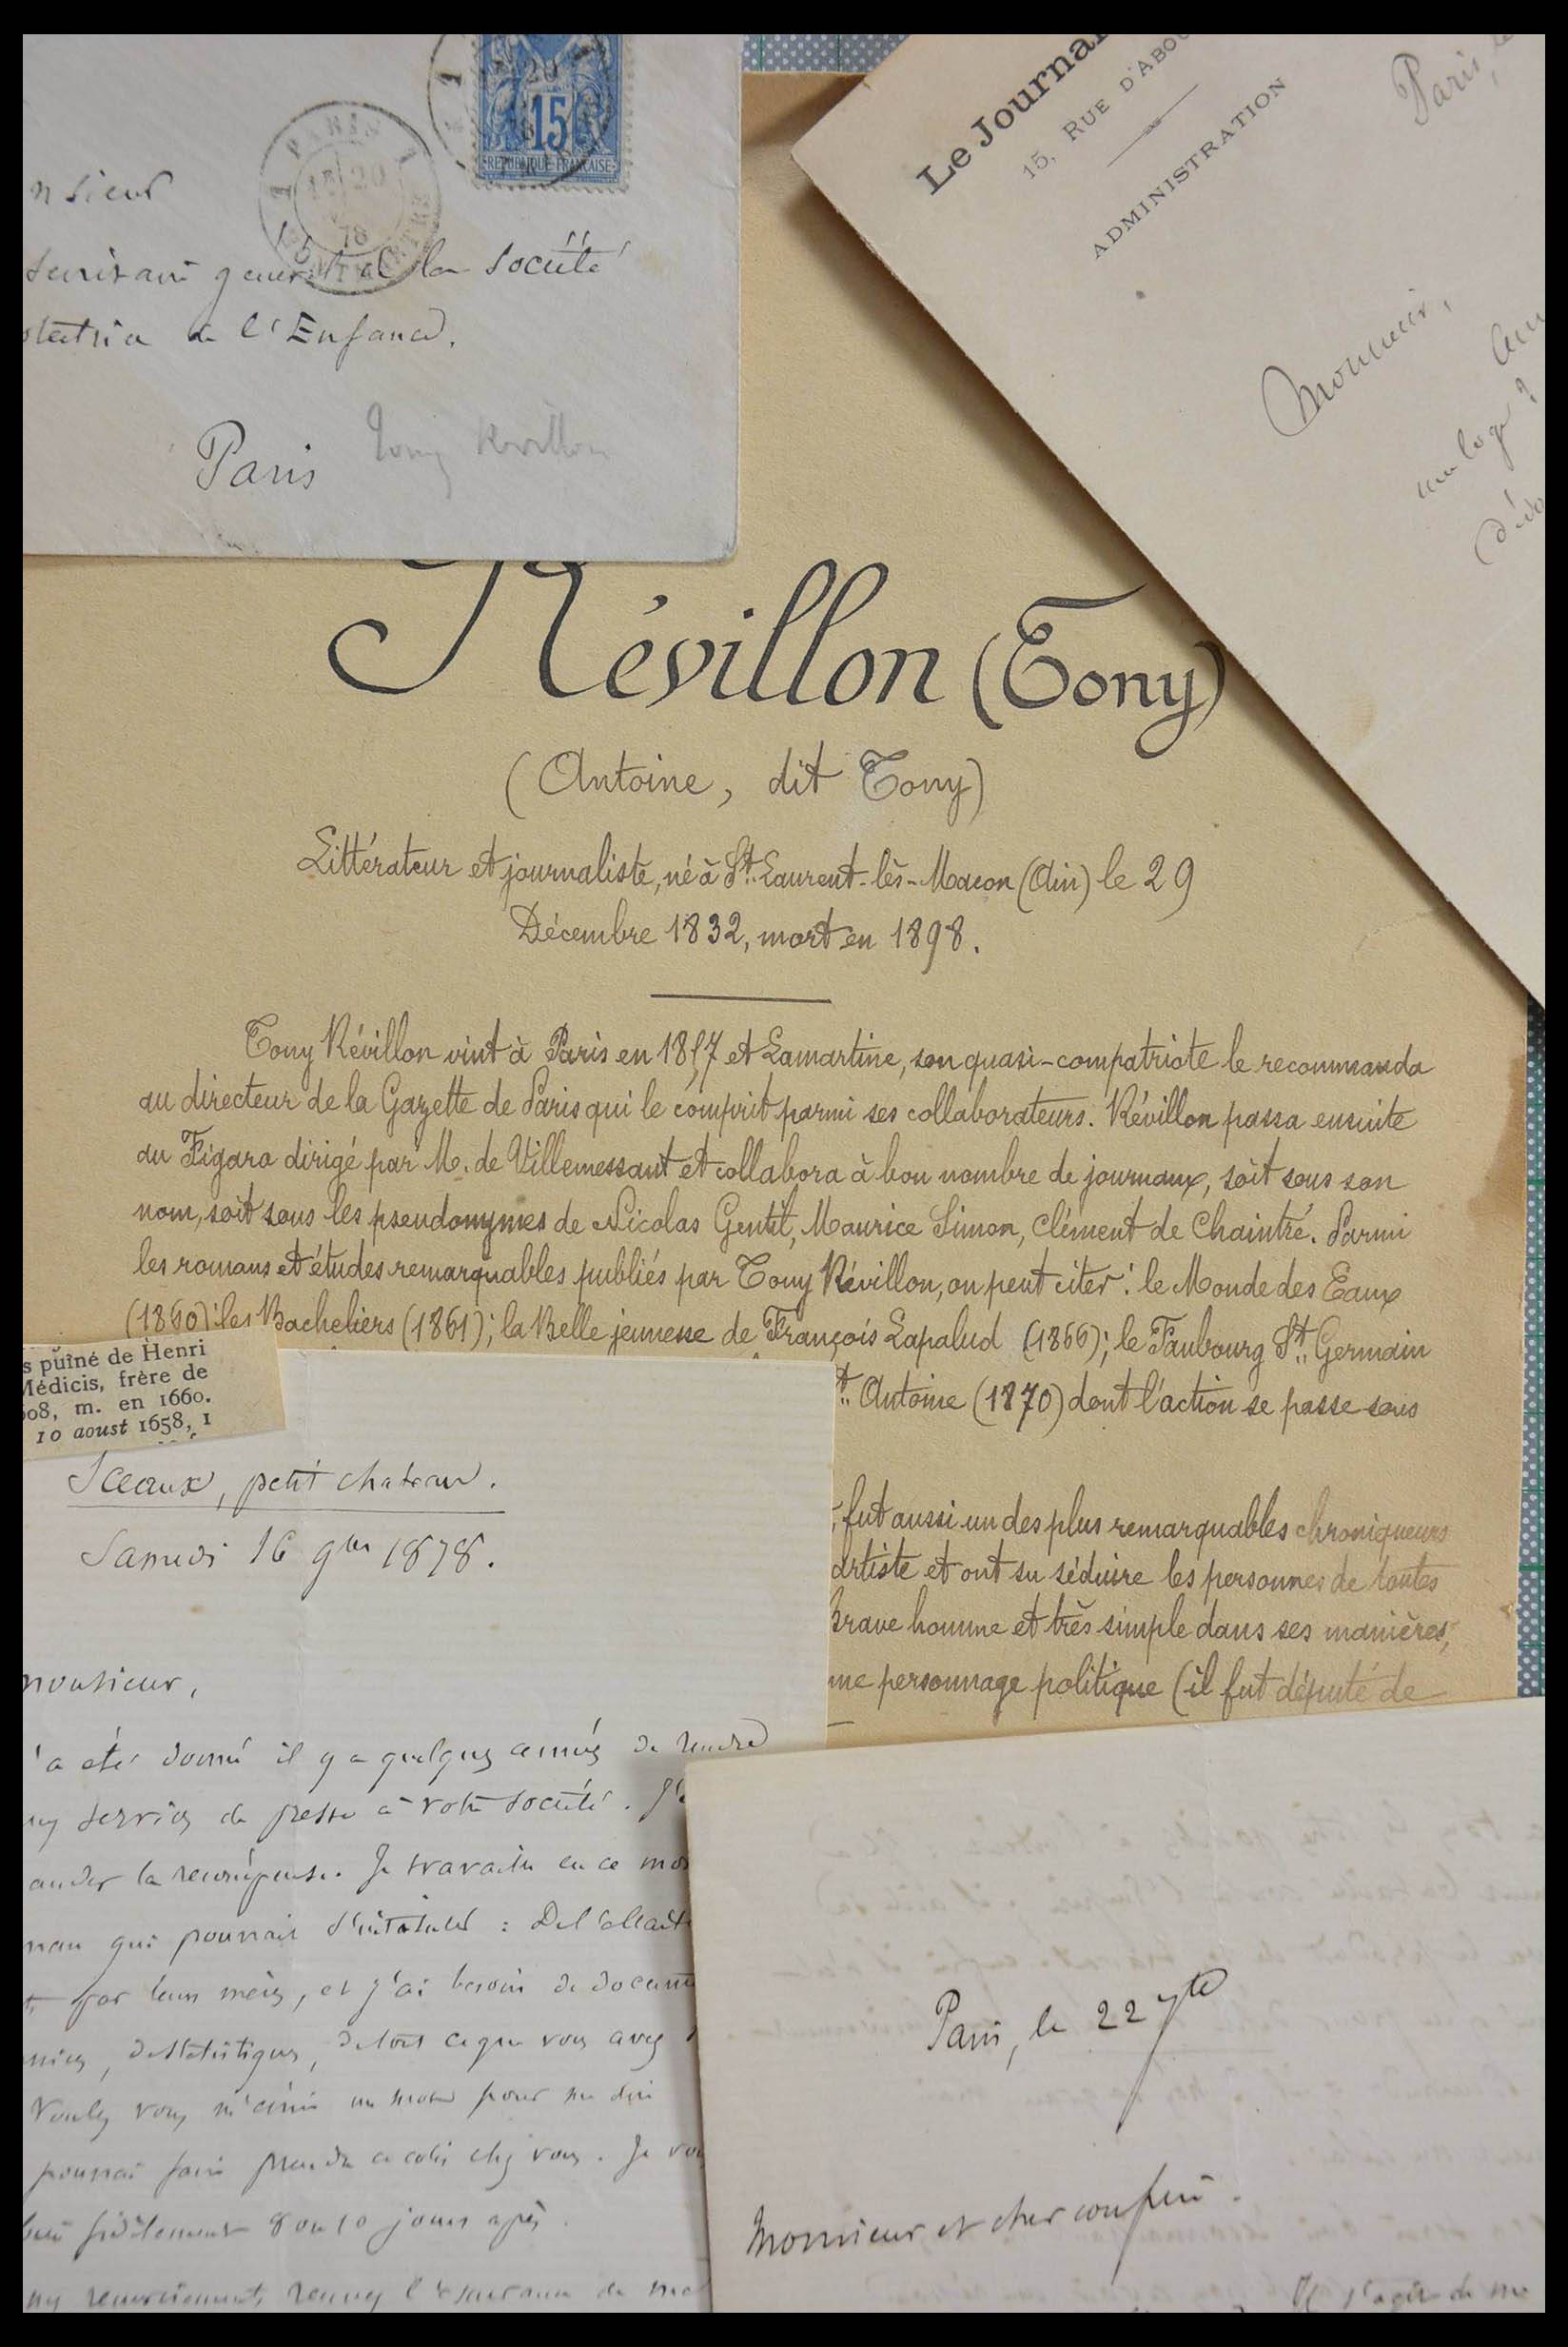 REPUBLIQUE FRANCAISE
15
PARIS
78
nsieur
général de la Société
de l'Enfance.
Paris
Tony Révillon
Le Journal
15, RUE D'ABOU
ADMINISTRATION
Paris, le
Monsieur,
Révillon (Tony)
(Antoine, dit Tony)
Littérateur et journaliste, né à St. Laurent-lès-Macon (Ain) le 29
Décembre 1832, mort en 1898.
Tony Révillon vint à Paris en 1857 et Lamartine, son quasi-compatriote le recommanda
au directeur de la Gazette de Paris qui le comprit parmi ses collaborateurs. Révillon passa ensuite
au Figaro dirigé par M. de Villemessant et collabora à bon nombre de journaux, soit sous son
nom, soit sous les pseudonymes de Nicolas Gentil, Maurice Simon, Clément de Chaintré. Parmi
les romans et études remarquables publiés par Tony Révillon, on peut citer: le Monde des Eaux
(1860); les Bacheliers (1861); la Belle jeunesse de François Lapalud (1866); le Faubourg St. Germain
t. Antoine (1870) dont l'action se passe sous
, fut aussi un des plus remarquables chroniqueurs
artiste et ont su séduire les personnes de toutes
brave homme et très simple dans ses manières,
me personnage politique (il fut député de
s puîné de Henri
Médicis, frère de
608, m. en 1660.
10 aoust 1658, 1
Sceaux, petit chateau.
Samedi 16 9bre 1878.
monsieur,
'a été donné il y a quelques années de rendre
services de presse à votre société. J'
ander la récompense. Je travaille en ce mo
man qui pourrait s'intituler : De l'allait
par leurs mères, et j'ai besoin de docume
, de statistiques, de tout ce que vous avez
Voulez vous m'écrire un mot pour me dire
pourrai faire prendre ce colis chez vous. Je vou
fidèlement 8 ou 10 jours après.
remerciements, l'assurance de me
Paris, le 22
Monsieur et cher confrère.
Il s'agit de me